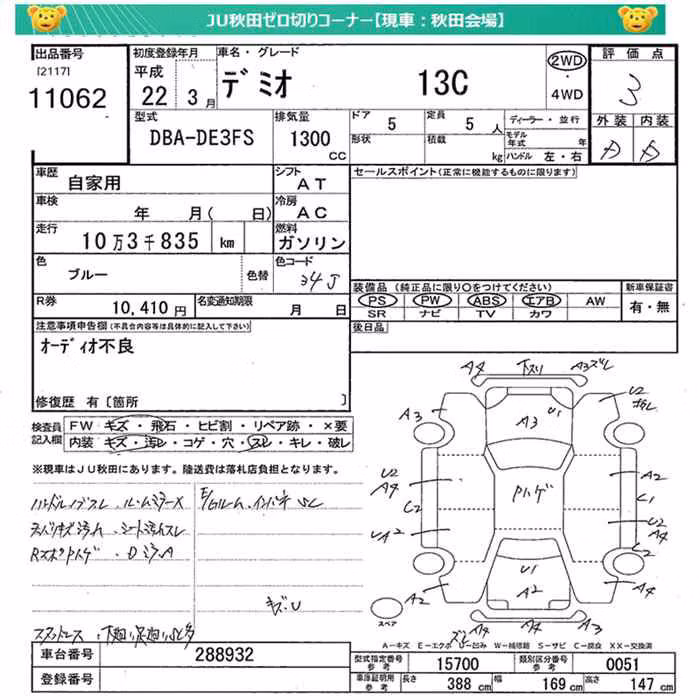 JU秋田ゼロ切りコーナー【現車：秋田会場】
出品番号 初度登録年月 車名・グレード 2WD 評価点
[2117] 平成
11062 22年 3月 デミオ 13C ・ 4WD 3
型式 排気量 ドア 定員 ディーラー・並行 外装 内装
DBA-DE3FS 1300 CC 5 5人 モデル年式 年
形状 積載 kg ハンドル 左・右
車歴 自家用 シフト AT セールスポイント(正常に機能するものに限ります)
車検 年 月( 日) 冷房 AC
走行 10万3千835 km 燃料 ガソリン
色 ブルー 色替 色コード 34J
装備品 (純正品に限り○をつけてください) 新車保証書
R券 10,410円 名変通知期限 月 日 PS PW ABS エアB AW 有・無
SR ナビ TV カワ
注意事項申告欄(不具合内容等は具体的に記入して下さい) 後日品
オーディオ不良
修復歴 有 [箇所 ]
検査員記入欄 FW キズ・飛石・ヒビ割・リペア跡・×要
内装 キズ・汚レ・コゲ・穴・スレ・キレ・破レ
※現車はJU秋田にあります。陸送費は落札店負担となります。
A4 下スリ A3ズレ
U2
A3 A3 U1
U2 A4 C2 Pハゲ A2 C1
UA2 U2 A4
C2
A2 U1 A2 A4
ズレ A4 A4 A3
スペア
キズU
A－キズ E－エクボ U－凹み W－補修跡 S－サビ C－腐食 XX－交換済
車台番号 288932 型式指定番号 参考 15700 類別区分番号 参考 0051
登録番号 車庫証明用 参考 長さ 388 cm 幅 169 cm 高さ 147 cm